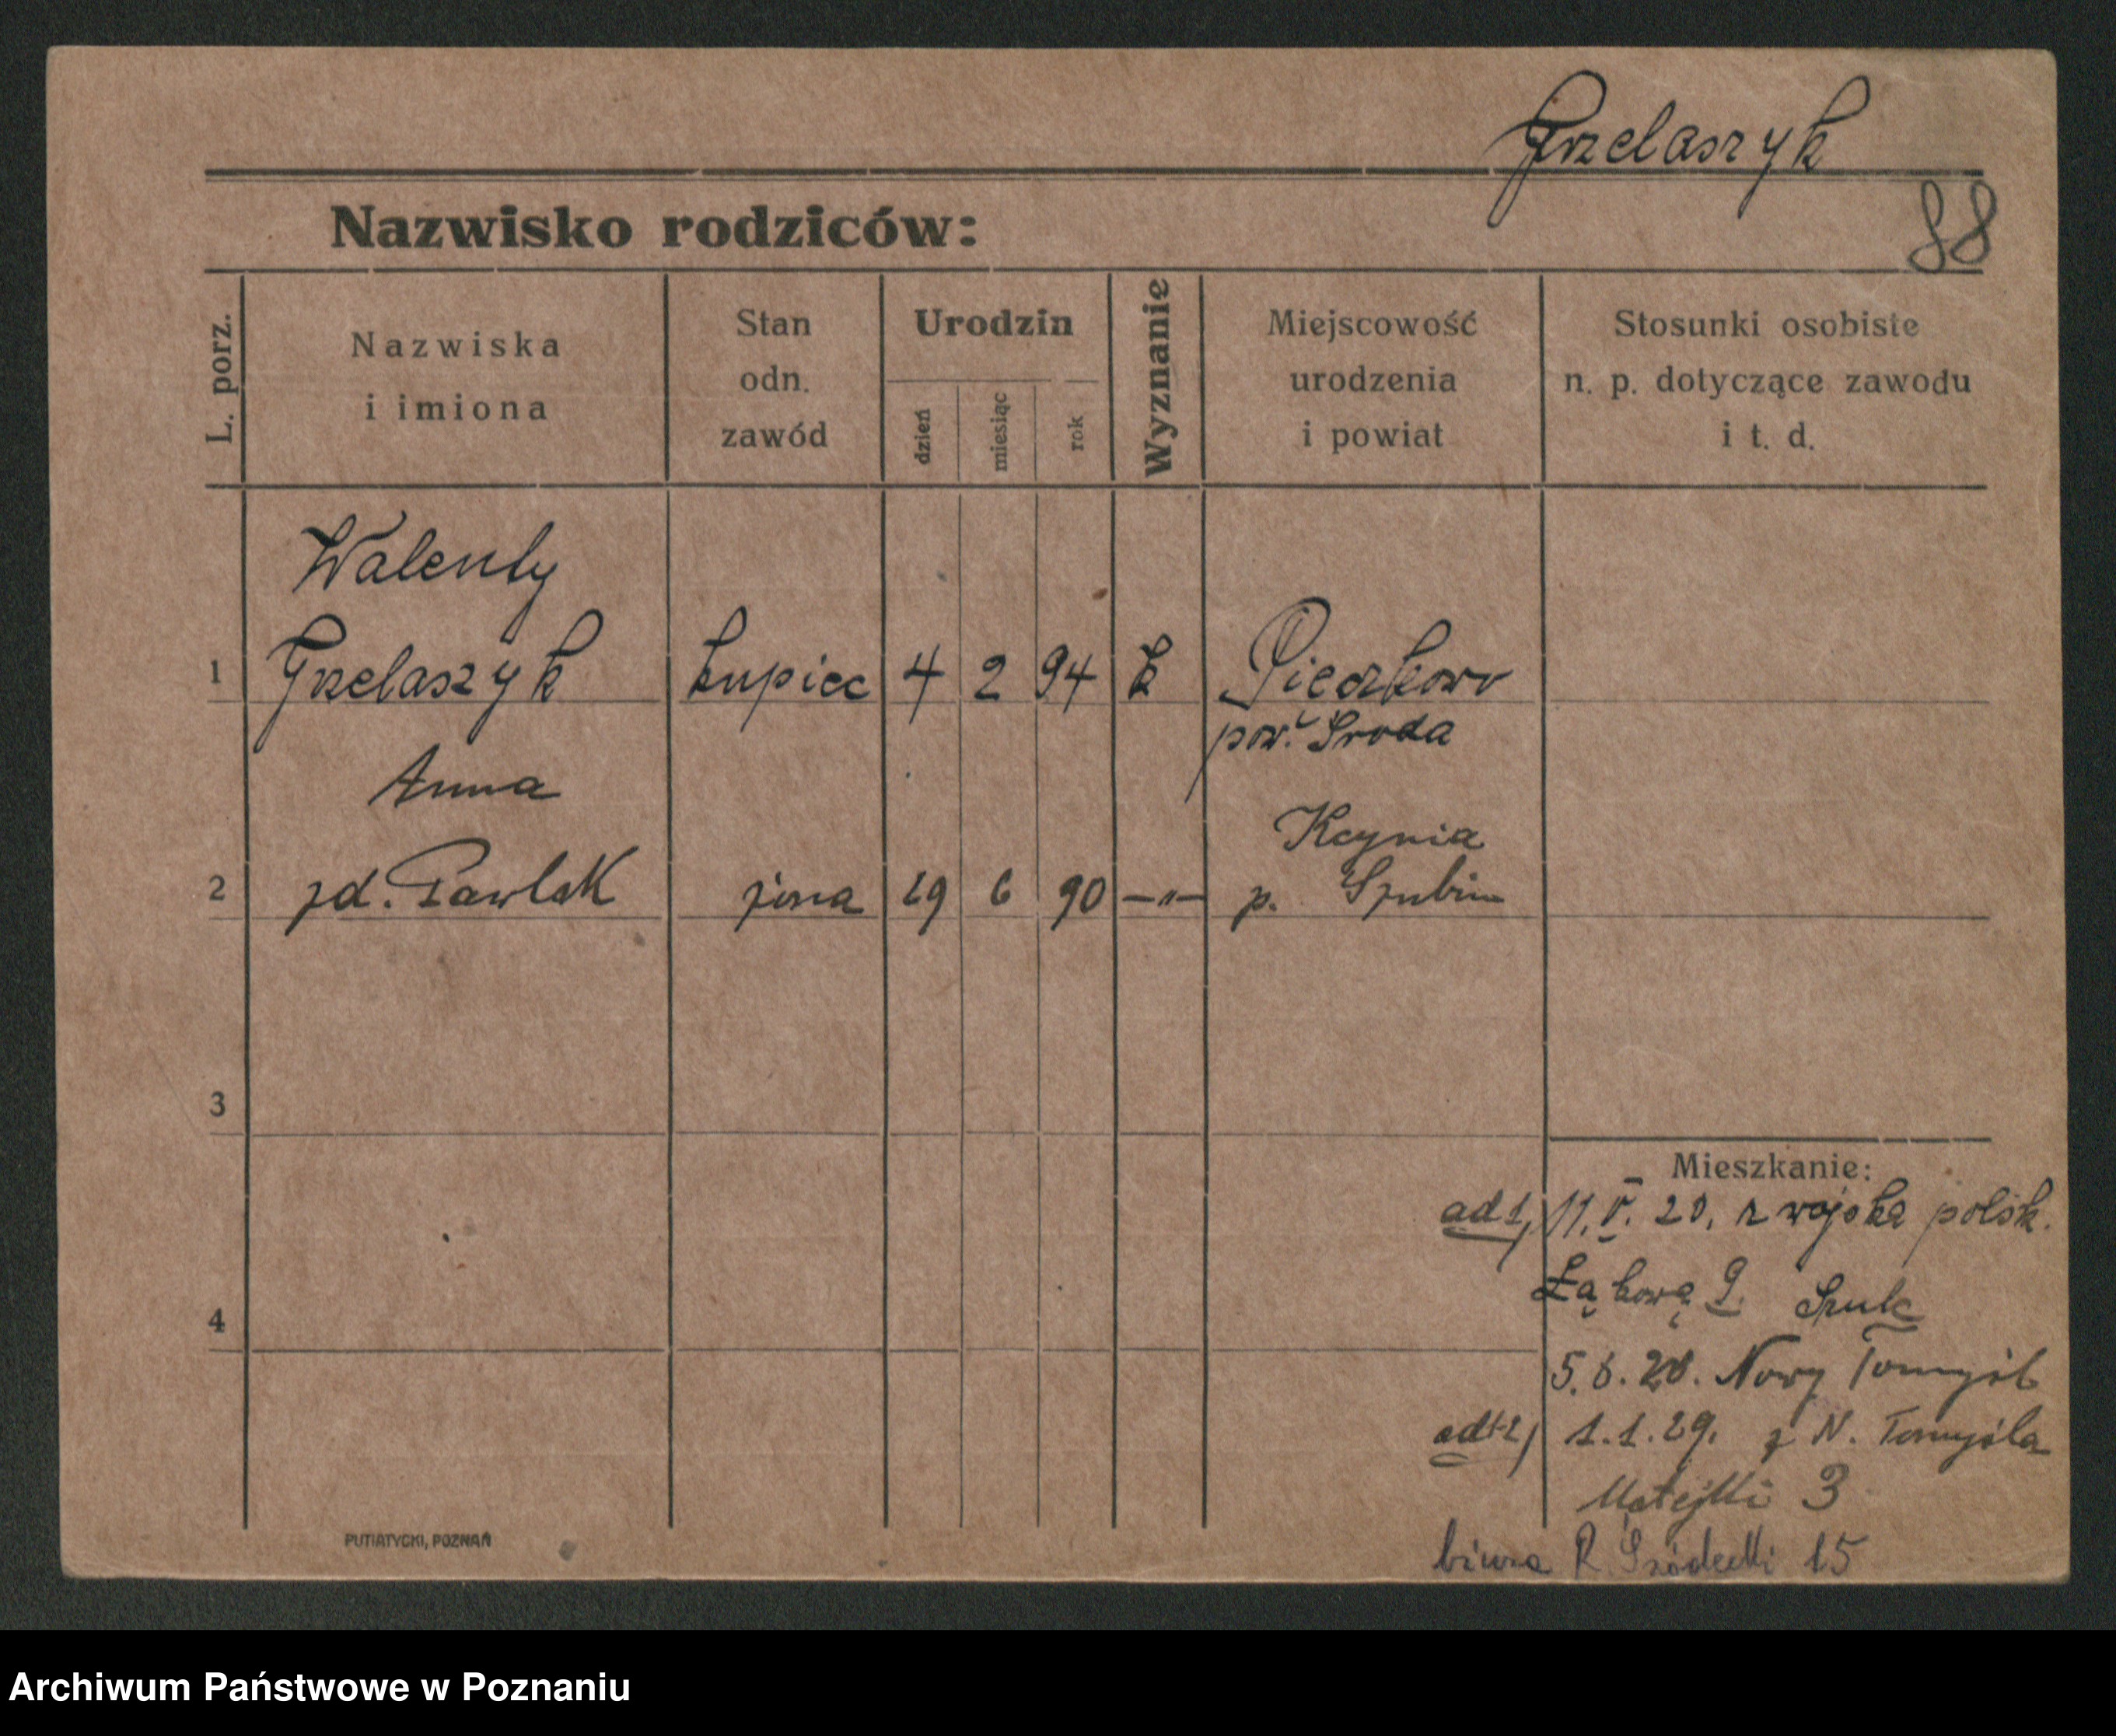 Grzelaszyk
88
Nazwisko rodziców:
L. porz.
Nazwiska
i imiona
Stan
odn.
zawód
Urodzin
dzień
miesiąc
rok
Wyznanie
Miejscowość
urodzenia
i powiat
Stosunki osobiste
n. p. dotyczące zawodu
i t. d.
Walenty
1 Grzelaszyk kupiec 4 2 94 k Pieczkowo
pow. Środa
Anna
Kcynia
2 zd. Pawlak żona 29 6 90 —"— p. Szubin
3
4
Mieszkanie:
ad 1, 11. V. 20. z wojska polsk.
Łąkowa 9. Szulc
5.6.20. Nowy Tomyśl
ad 1-2, 1.1.29. z N. Tomyśla
Matejki 3
R. Śródecki 15
PUTIATYCKI, POZNAŃ
Archiwum Państwowe w Poznaniu